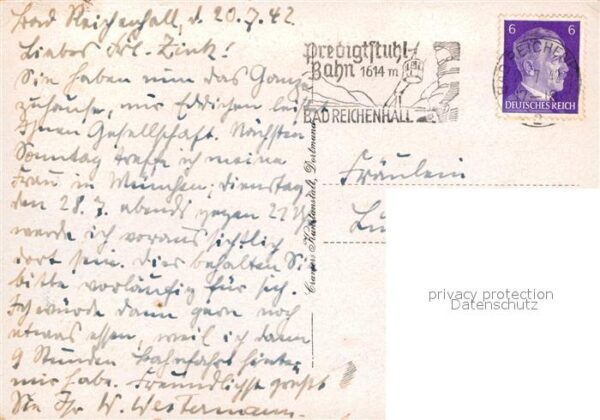 Bad Reichenhall, d. 20.7.42.
Liebes Frl. Zink!
Sie haben nun das Ganze
zuhause, nur Eddichen leistet
Ihnen Gesellschaft. Nächsten
Sonntag treffe ich meine
Frau in München, Dienstag,
den 28.7. abends gegen 21 Uhr
werde ich voraussichtlich
dort sein. Dies behalten Sie
bitte vorläufig für sich.
Ich würde dann gern noch
etwas essen, weil ich dann
9 Stunden Bahnfahrt hinter
mir habe. Freundlichst grüßt
Sie Ihr W. Westermann.
Predigtstuhl-
Bahn 1614 m
BAD REICHENHALL
6 6
DEUTSCHES REICH
Cramers Kunstanstalt, Dortmund
Fräulein
privacy protection
Datenschutz